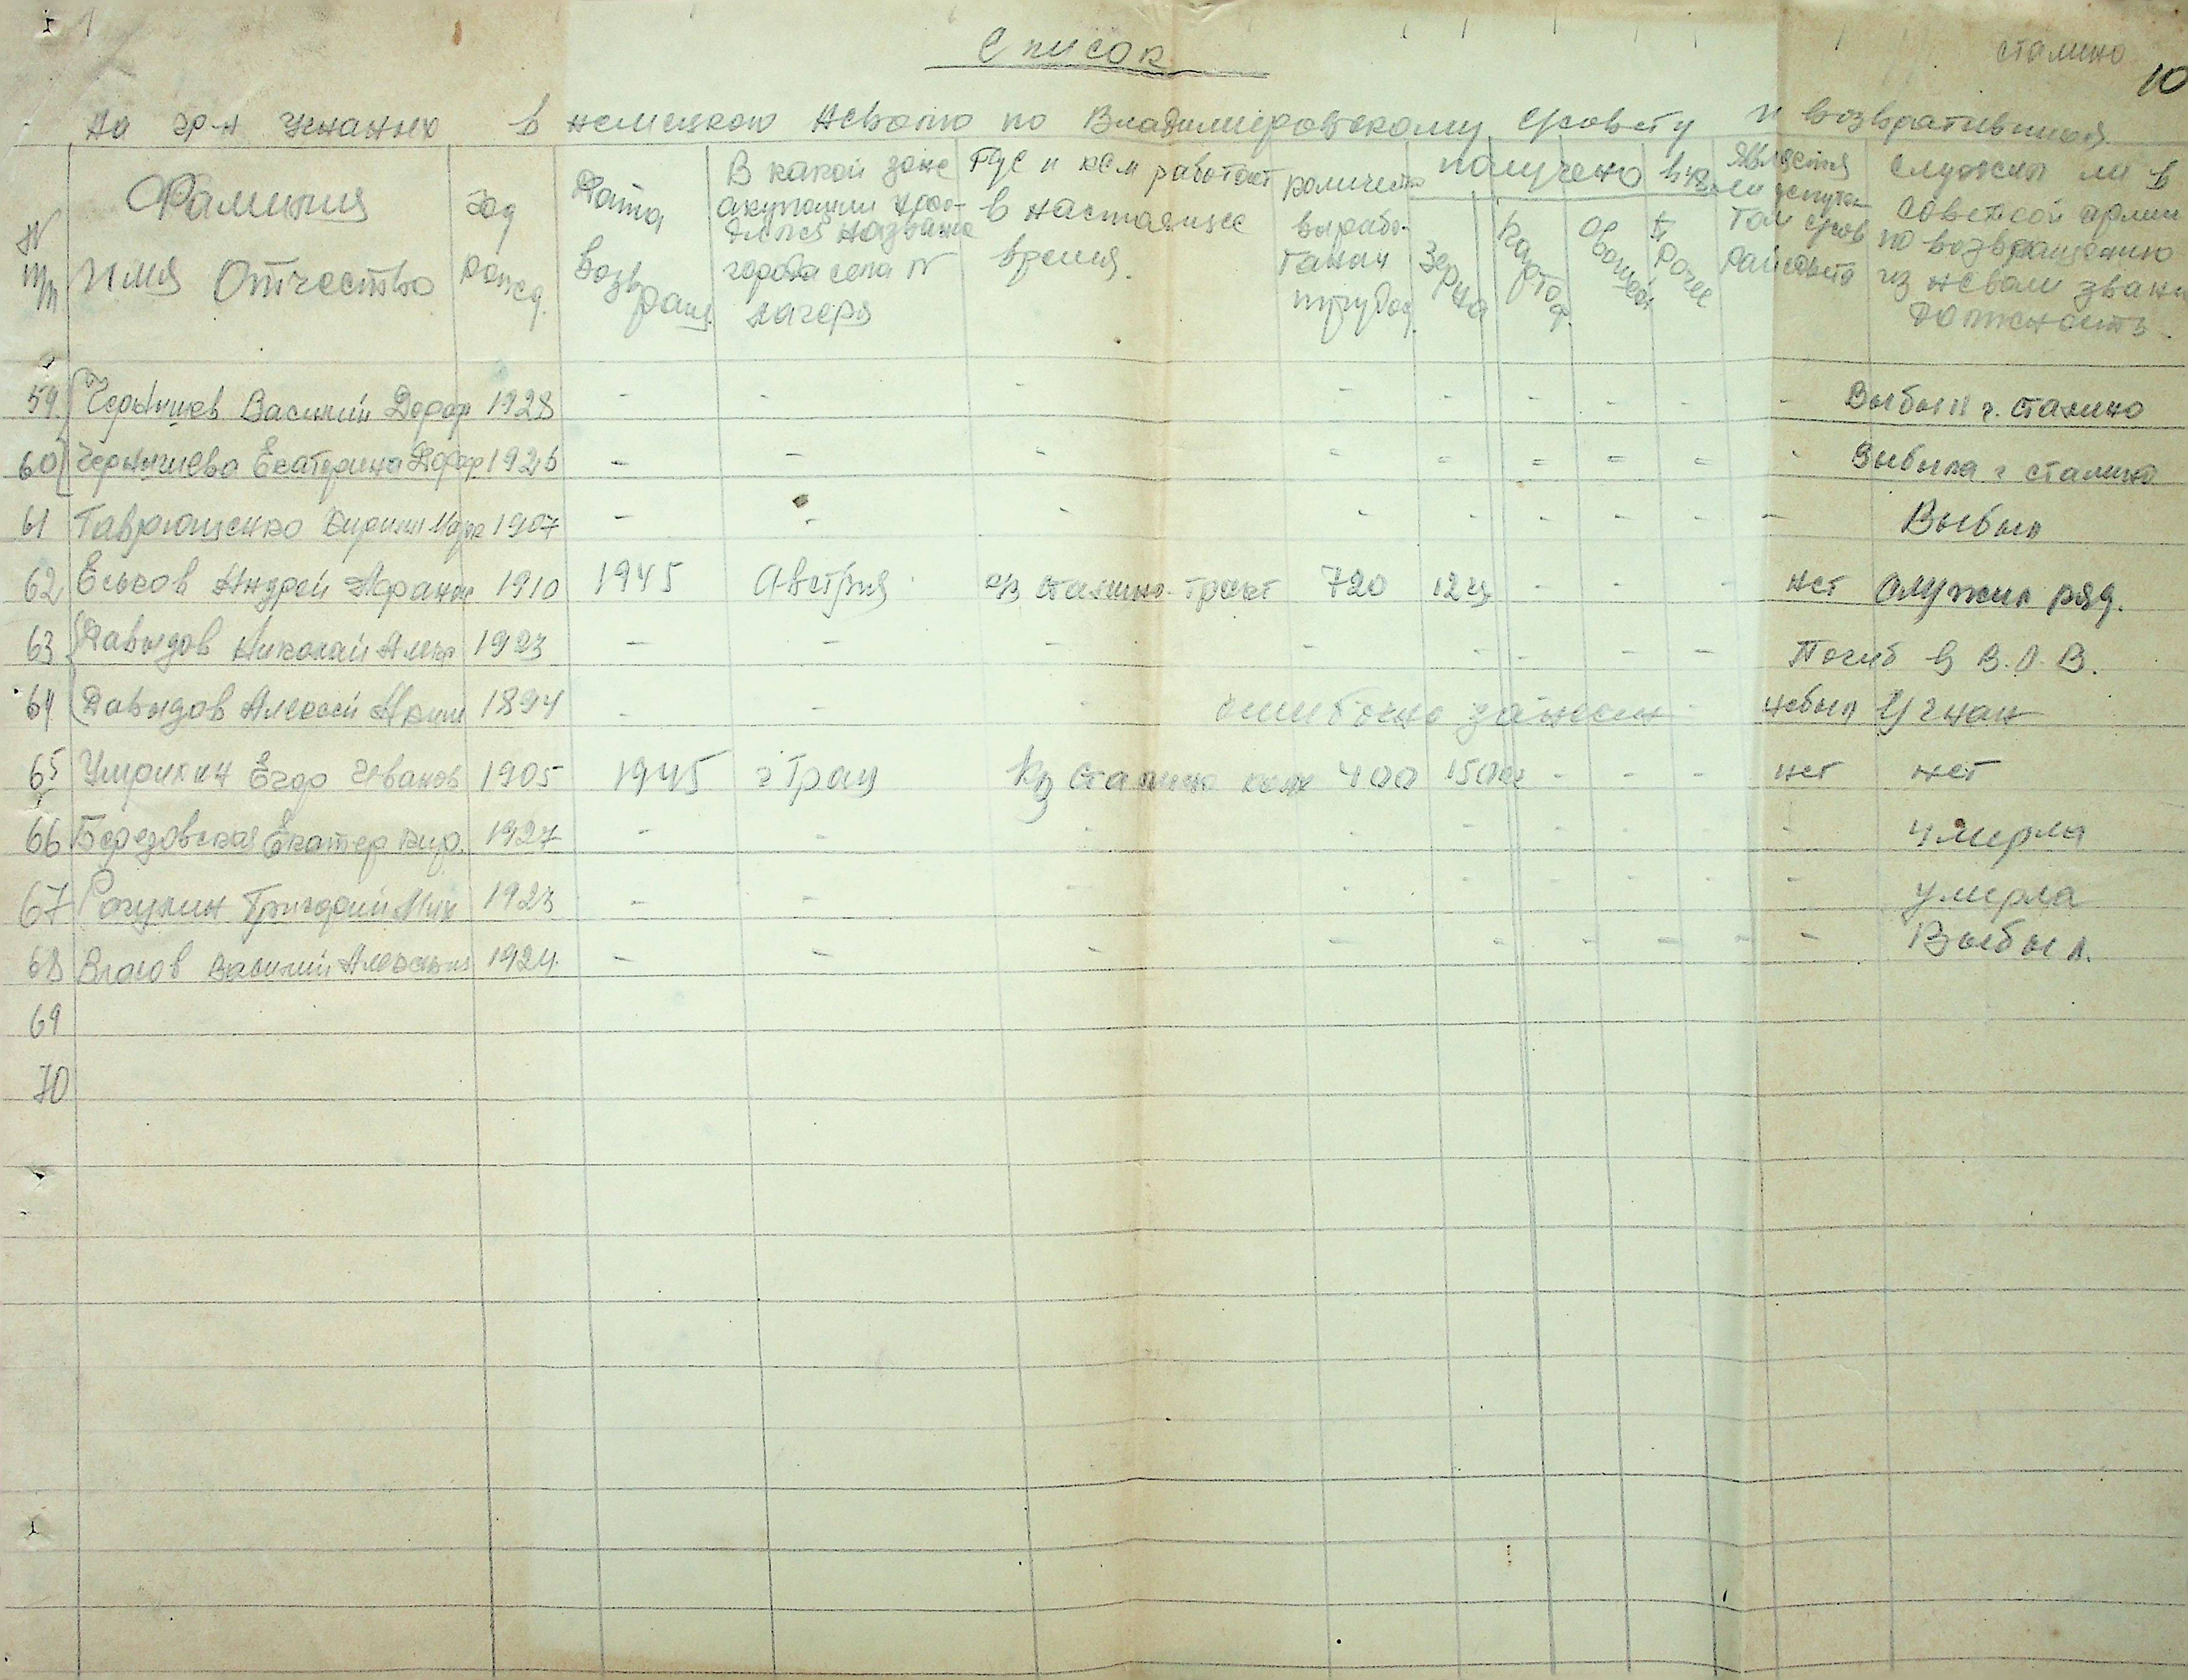 Список
Сталино
10
на гр-н угнаных в немецкою неволю по Владимировскому с/совету и возвратившихся
№ п/п
Фамилия Имя Отчество
год рожд.
Дата возвращ.
В какой зоне
города села №
лагеря
Где и кем работает в настоящее время.
количеств вырабо-
танан
труд.
получено
зерна
картоф.
овощей
прочее
является ли депута-
том с/сов
райсовета
служил ли в
советской армии
по возвращению
из невол звани
должность.
59 Чернышев Василий Дороф 1928 - - - - - - - - - Выбыл г. Сталино
60 Чернышева Екатерина Дороф 1926 - - - - - - - - - Выбыла г Сталино
61 Гаврющенко Кирилл Марк 1907 - - - - - - - - - Выбыл
62 Еськов Андрей 1910 1945 Австрия к/з Сталино тракт 720 12ц - - - нет служил ряд.
63 Давыдов Николай Алек 1923 - - - - - - - - Погиб в В.О.В.
64 Давыдов Алексей Аким 1894 - - - ошибочно занесен небыл угнан
65 Умрихин Егор Иванов 1905 1945 г Грац к/з Сталино кон 400 - - - нет нет
66 Березовская Екатер Кир. 1927 - - - - - - - - - умерла
67 Рагулин Григорий Мих 1923 - - - - - - - - - умерла
68 Власов Василий 1924 - - - - - - - - - Выбыл.
69
70